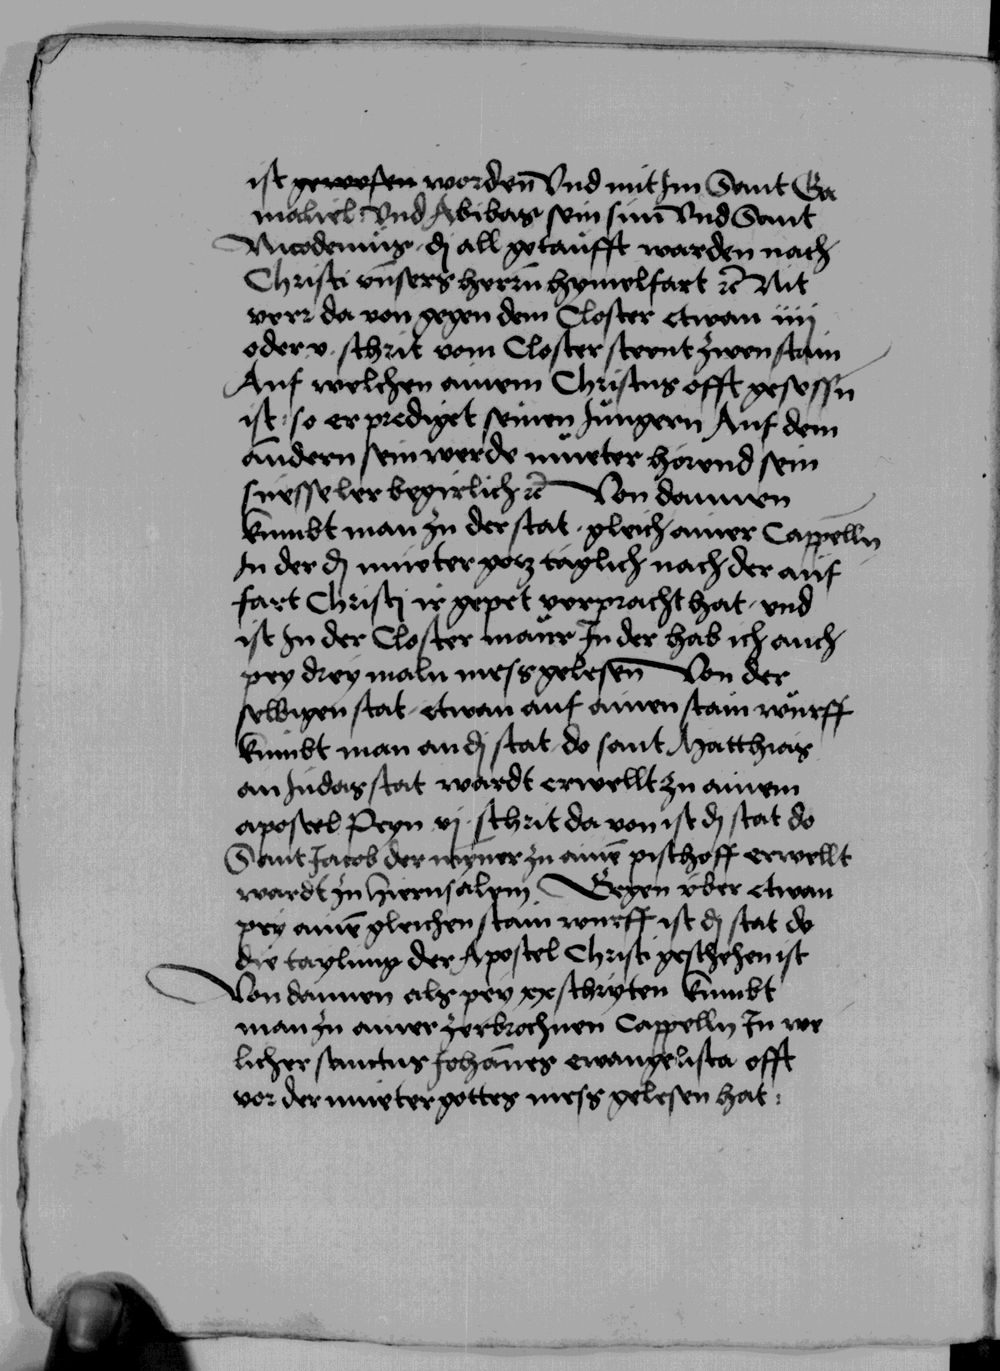 ist gewesen worden̄ Vnd mit Im Sant Ga
maliel. Vnd Abibas sein sun̄ Vnd Sant
Nicodemus. dj all getaufft warden nach
Christi vn̄sers herrn̄ hymelfart ꝛc̄ Nit
verr da von gegen dem Closter etwan iiij
oder v. schrit vom Closter steent zwen stain
Auf welchen ainem Christus offt gesessn̄
ist. so er prediget seinen Jungern Auf dem
andern sein werde mueter horend sein
suesse ler begirlich ꝛc̄ Von dannen
kumbt man zu der stat. gleich ainer Cappelln
In der dj mueter gotz taglich nach der auf
fart Christj ir gepet verpracht hat. vnd
ist In der Closter maur In der hab ich auch
pey drey maln mess gelesen̄ Von der
selbigen stat. etwan auf ainen stain wurff
kumbt man an dj stat. do sant Matthias
an Judas stat wardt erwellt zu ainem
apostel Peyn vj. schrit da von ist dj stat do
Sant Jacob der mynner zu ainē pischoff erwellt
wardt zu hierusalem. Gegen vber etwan
pey ainē gleichen stain wurff ist dj stat do
die taylung der Apostel Christi geschehen ist
Von dannen als pey xx schryten kumbt
man zu ainer zerbrochnen Cappelln In we
licher sanctus Johan̄es ewangelista offt
vor der mueter gottes mess gelesen hat: